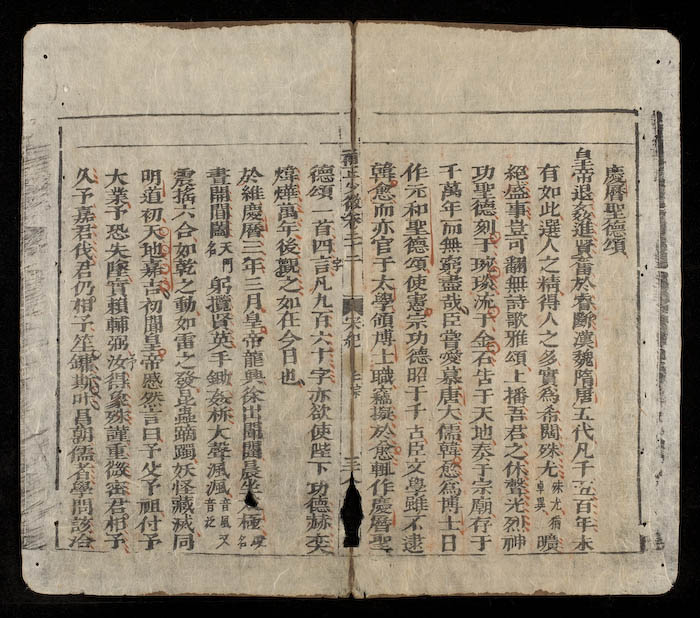 慶曆聖德頌
皇帝退姦進賢 於 斷漢魏隋唐五代凡千五百年未
有如此選人之精得人之多實爲希闊殊尤殊尤猶卓異曠
絕盛事豈可翻無詩歌雅頌上播吾君之休聲光烈神
功聖德刻于琬琰流于金石告于天地奏于宗廟存于
千萬年而無窮盡哉臣嘗愛慕唐大儒韓愈爲博士日
作元和聖德頌使憲宗功德昭于千古臣文學雖不逮
韓愈而亦官于太學領博士職竊擬於愈輒作慶曆聖
德頌一首四言凡九百六十字亦欲使陛下功德赫奕
煒燁萬年後觀之如在今日也
於維慶曆三年三月皇帝龍興徐出閨闥晨坐太極殿名
晝開閶闔天門名躬攬賢英手鋤姦枿大聲渢渢音風又音泛
震搖六合如乾之動如雷之發昆蟲蹢躅妖怪藏滅同
明道初天地嘉吉初聞皇帝慼然言曰予父予祖付予
大業予恐失墜實賴輔弼汝得象殊謹重微密君相予
久予嘉君伐君仍相予笙鏞斯叶昌朝儒者學問該洽
少微卷二十二 宋紀